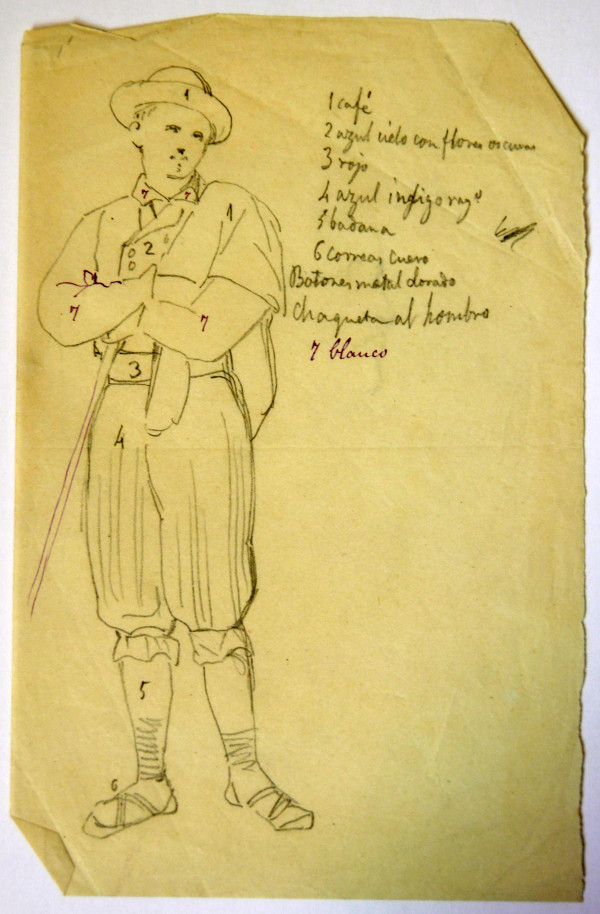 1 café
2 azul cielo con flores oscuras
3 rojo
4 azul indigo ray.º
5 badana
6 correas cuero
Botones metal dorado
Chaqueta al hombro
7 blanco
1
7 7
1
2
6
7
7
3
4
5
6